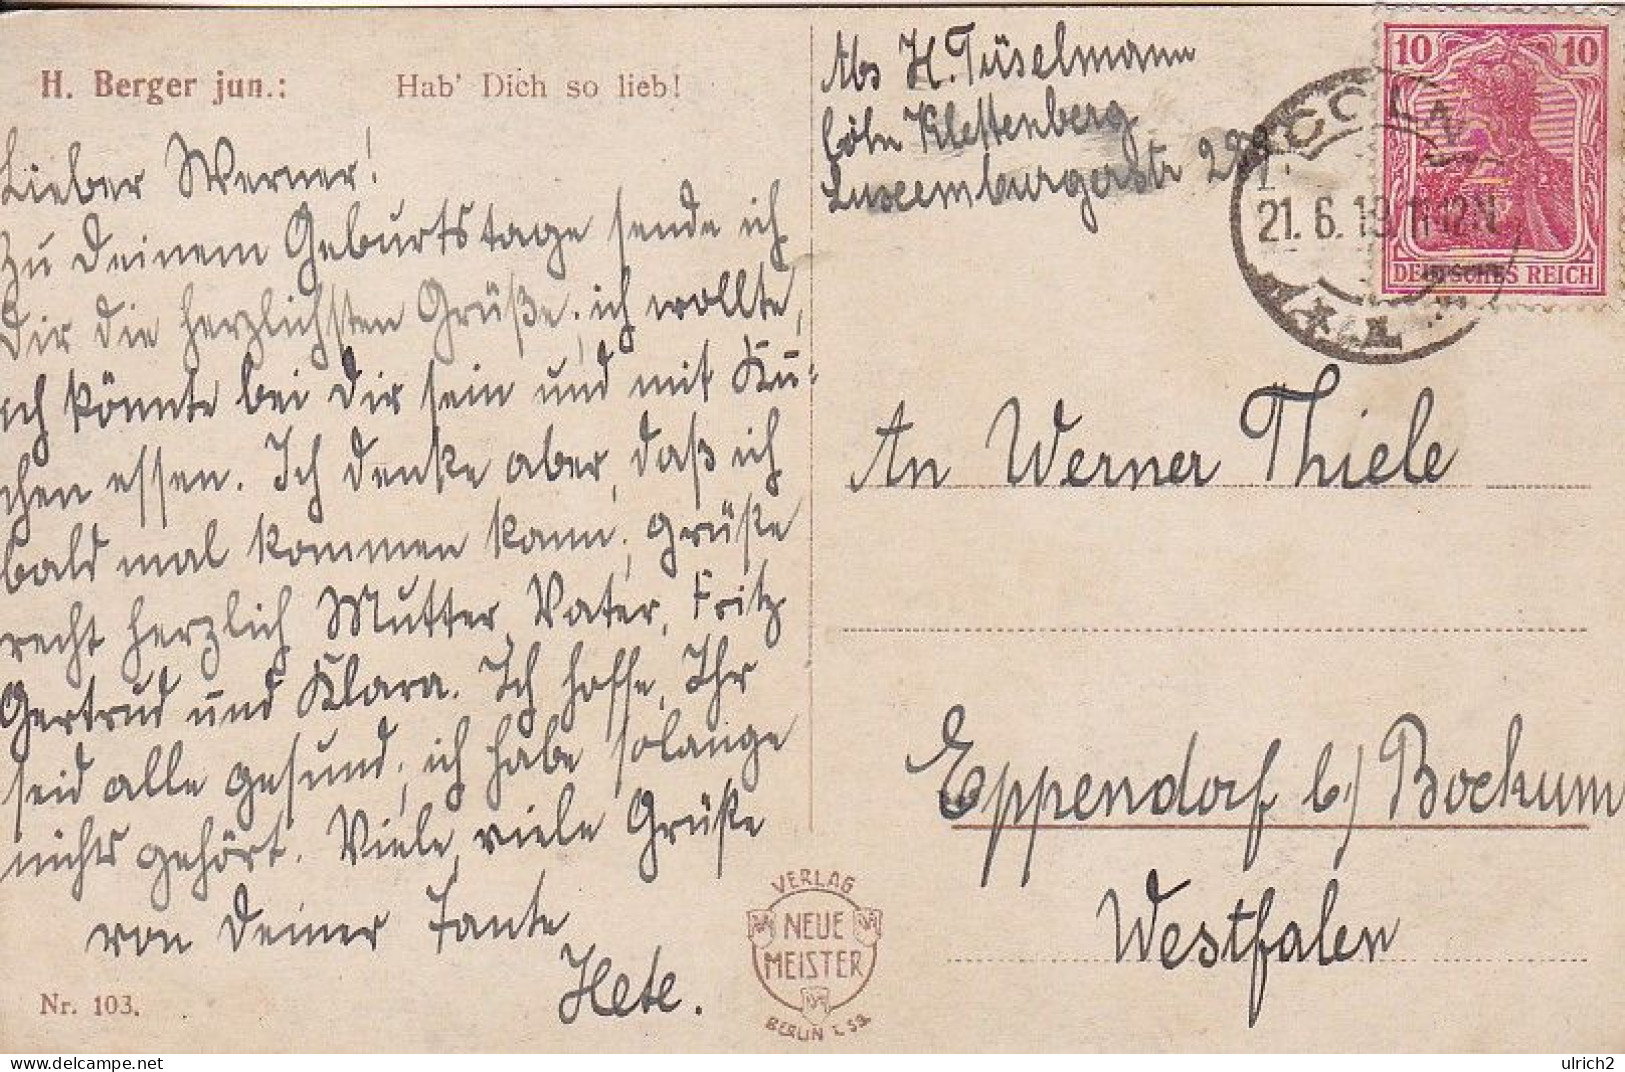 H. Berger jun.: Hab' Dich so lieb!
Lieber Werner!
Zu Deinem Geburtstage sende ich
Dir die herzlichsten Grüße, ich wollte,
ich könnte bei Dir sein und mit Ku-
chen essen. Ich denke aber, daß ich
bald mal kommen kann, Grüße
recht herzlich Mutter, Vater, Fritz
Gertrud und Klara. Ich hoffe, Ihr
seid alle gesund, ich habe solange
nichts gehört. Viele, viele Grüße
von Deiner Tante
Hete.
Nr. 103.
VERLAG
NEUE
MEISTER
BERLIN
Abs H. Tüselmann
Cöln Klettenberg
Luxemburgerstr
CÖLN
21. 6. 19. 11-12N
10 10
DEUTSCHES REICH
An Werner Thiele
Eppendorf b/ Bochum
Westfalen
ulrich2